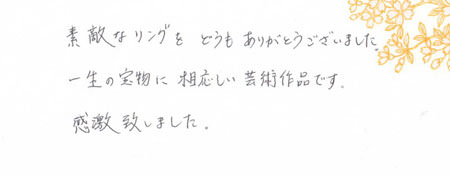 素敵なリングを どうもありがとうございました。
一生の宝物に 相応しい芸術作品です。
感激致しました。